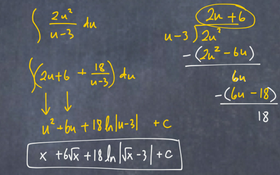 ∫ 2u²/(u-3) du
∫(2u+6 + 18/(u-3)) du
u² + 6u + 18 ln|u-3| + c
x + 6√x + 18 ln|√x - 3| + c
2u + 6
u-3 ) 2u²
-(2u² - 6u)
6u
-(6u - 18)
18